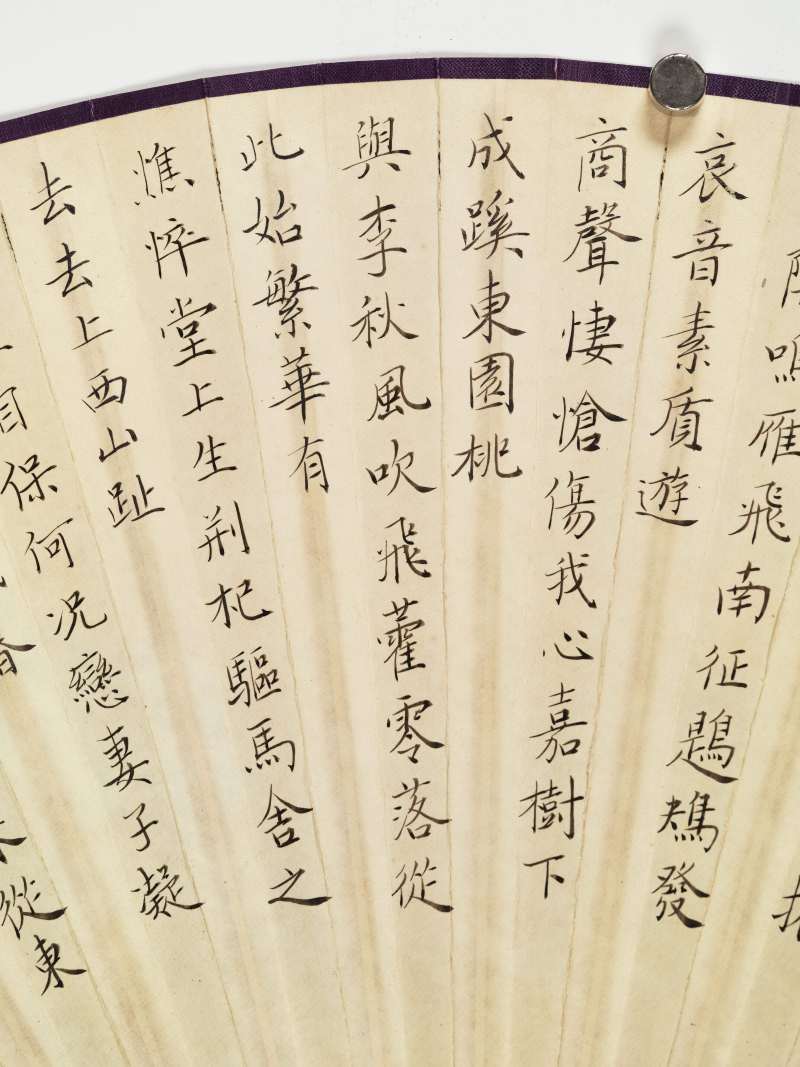 鳴雁飛南征鶗鴂發
哀音素質遊
商聲悽愴傷我心嘉樹下
成蹊東園桃
與李秋風吹飛藿零落從
此始繁華有
憔悴堂上生荆杞驅馬舍之
去去上西山趾
自保何况戀妻子凝
從東